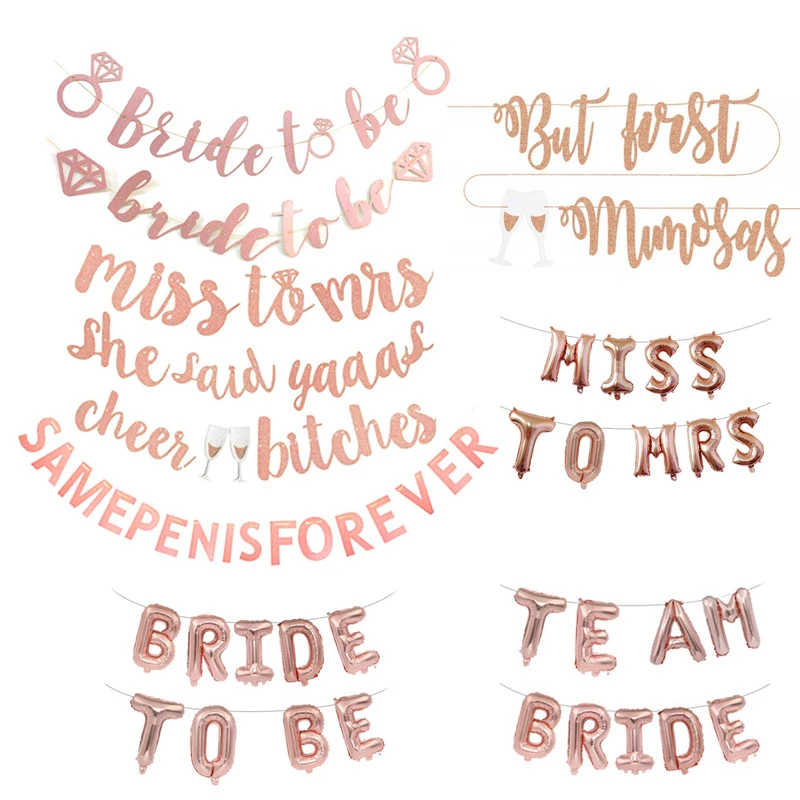 Bride to be
bride to be
miss to mrs
she said yaaas
cheer bitches
SAMEPENISFOREVER
But first
Mimosas
MISS
TO MRS
BRIDE
TO BE
TEAM
BRIDE